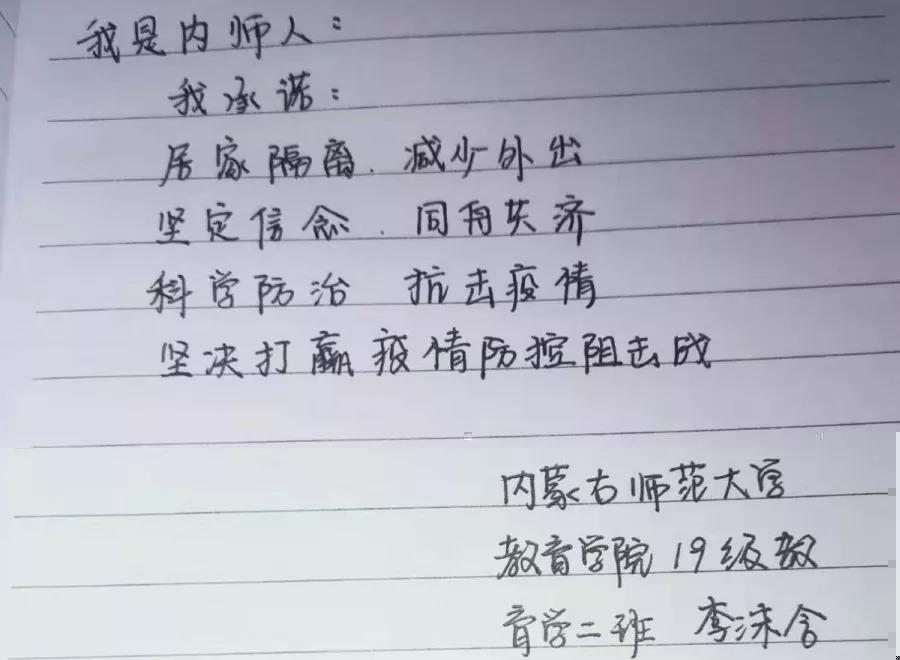 我是内师人:
我承诺:
居家隔离.减少外出
坚定信念.同舟共济
科学防治 抗击疫情
坚决打赢疫情防控阻击战
内蒙古师范大学
教育学院19级教
育学二班 李沫含